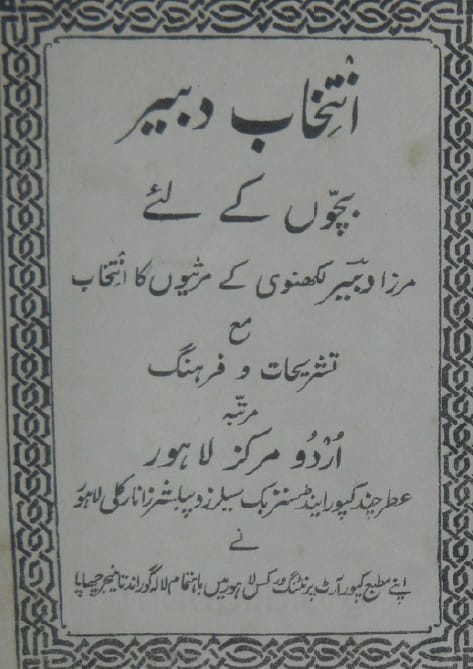 انتخاب دبیر
بچّوں کے لئے
مرزا دبیر لکھنوی کے مرثیوں کا انتخاب
مع
تشریحات و فرہنگ
مرتبہ
اُردُو مرکز لاہور
عطر چند کپور اینڈ سنز بک سیلرز و پبلشرز انارکلی لاہور
نے
اپنے مطبع کپور آرٹ پرنٹنگ ورکس لاہور میں باہتمام لالہ گوراندتا مینجر چھاپا